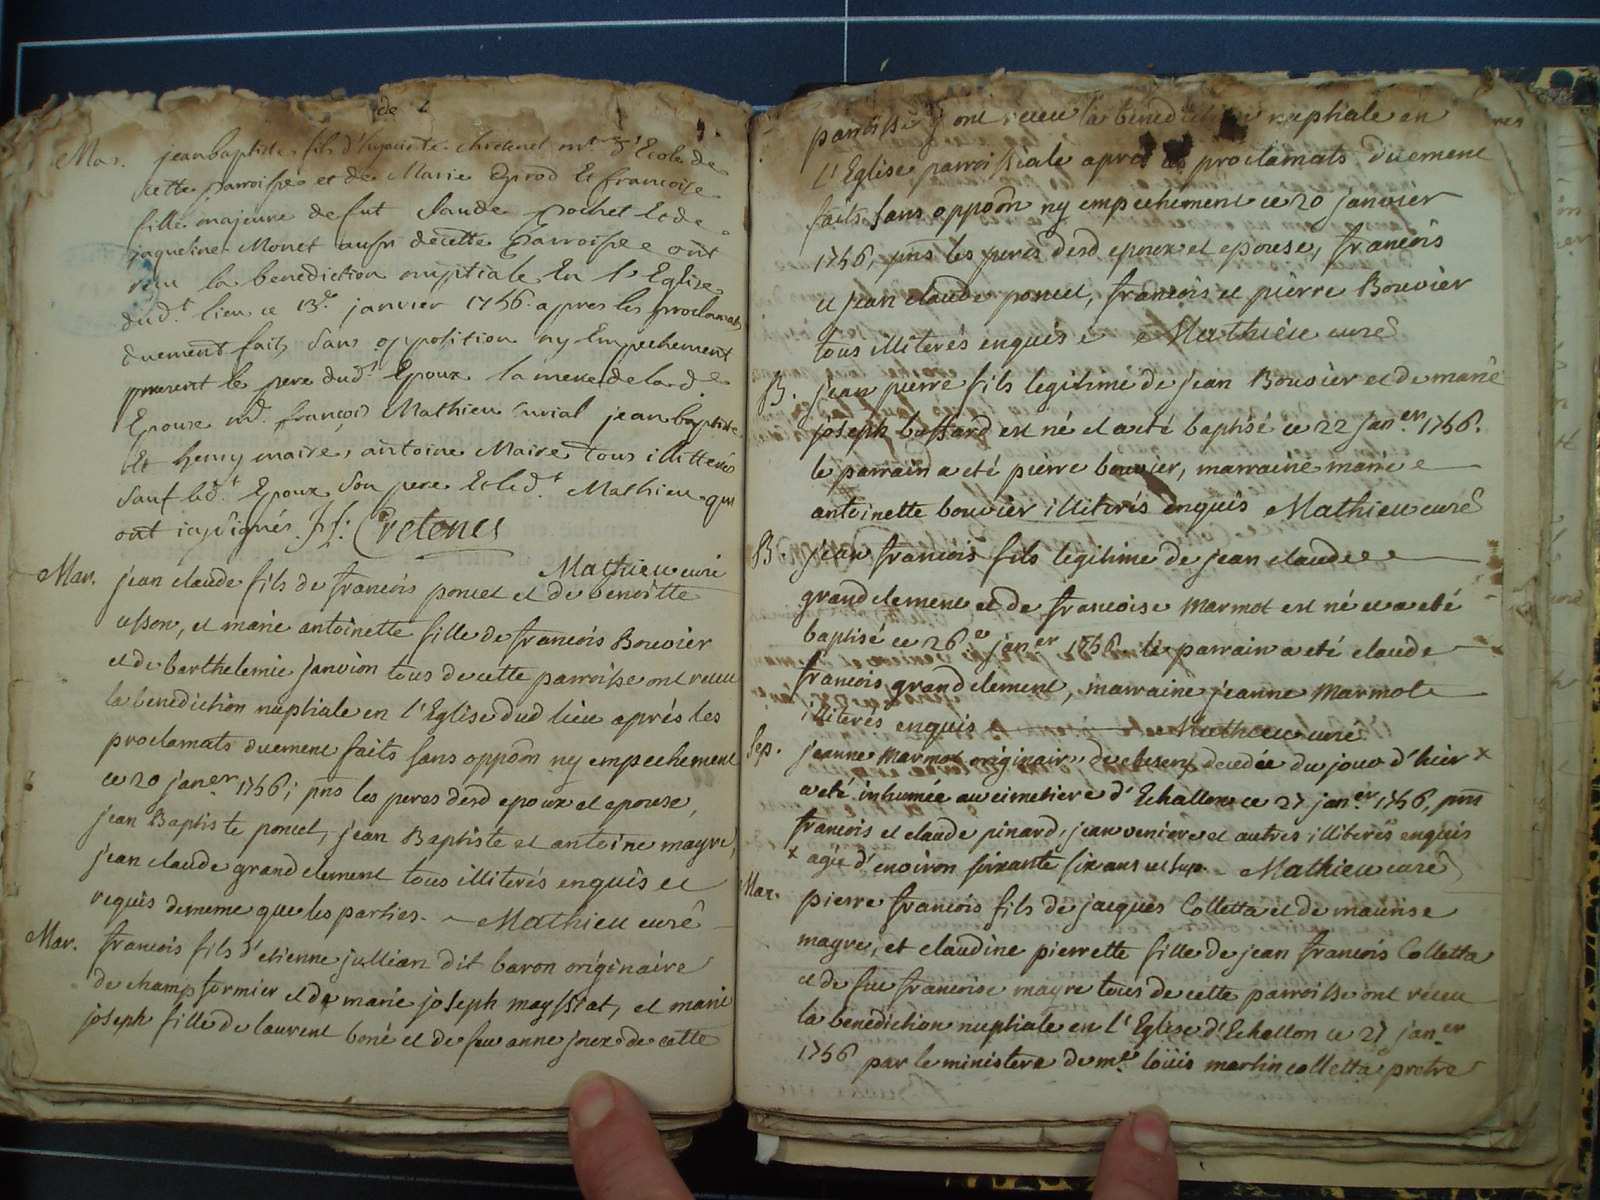 de
Mar. jean baptiste fils d'hyacinte chretenet mtre d'Ecole de
cette parroisse et de Marie Eprod Et francoise
fille majeure de fut Claude Pochet Et de
jaqueline Monet aussi de cette Parroisse ont
recu la benediction nuptiale En l'Eglise
dud.t lieu ce 13.e janvier 1756 apres les proclamats
duement faits sans opposition ny Empechement
present le pere dud.t Epoux la mere de lad.e
Epouse md. françois Mathieu curial jean baptiste
Et henry maire, antoine Maire tous illitterés
Sauf led.t Epoux Son pere Et led.t Mathieu qui
ont icy signés. Cretenet
Mathieu curé
Mar. jean claude fils de francois poncet et de benoitte
usson, et marie antoinette fille de francois Bouvier
et de barthelemie janvion tous de cette parroisse ont receu
la benediction nuptiale en l'Eglise dud lieu aprés les
proclamats duement faits sans oppoôn ny empechement
ce 20 jan.er 1756; pñs les peres desd epoux et epouse,
jean Baptiste poncet, jean Baptiste et antoine mayre,
jean claude grandclement tous illiterés enquis et
requis de meme que les parties. Mathieu curé
Mar. francois fils d'etienne jullian dit baron originaire
de champformier et de marie joseph mayssiat, et marie
joseph fille de laurent boné et de feu anne jouxd de cette
parroisse ont receu la benediction nuptiale en
l'Eglise parroissiale aprés les proclamats duement
faits sans oppoôn ny empechement ce 20 janvier
1756, pñs les peres desd epoux et epouse, francois
et jean claude poncet, francois et pierre Bouvier
tous illiterés enquis Mathieu curé
B. jean pierre fils legitime de jean Bouvier et de marie
joseph bossard est né et a eté baptisé ce 22 jan.er 1756.
le parrain a eté pierre bouvier, marraine marie
antoinette bouvier illiterés enquis Mathieu curé
B. jean francois fils legitime de jean claude
grandclement et de francoise marmot est né et a eté
baptisé ce 26e jan.er 1756 le parrain a eté claude
francois grandclement, marraine jeanne marmot
illiterés enquis Mathieu curé
Sep. jeanne marmot originaire de decedée du jour d'hier x
a eté inhumée au cimetiere d'Echallon ce 27 jan.er 1756, pñs
francois et claude pinard, jean venier et autres illiterés enquis
x agée d'environ soixante six ans ut sup. Mathieu curé
Mar. pierre francois fils de jacques Colletta et de maurise
mayre, et claudine pierrette fille de jean francois Colletta
et de feu francoise mayre tous de cette parroisse ont receu
la benediction nuptiale en l'Eglise d'Echallon ce 27 jan.er
1756 par le ministere de m.re loüis martin colletta pretre